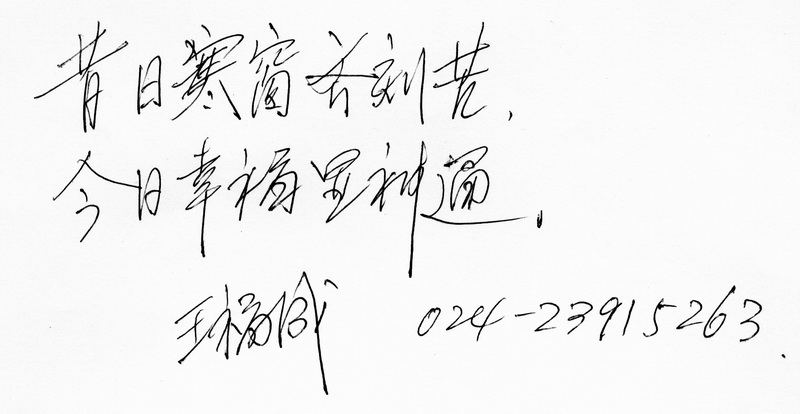 昔日寒窗齐刻苦,
今日幸福显神通,
王福成 024-23915263.